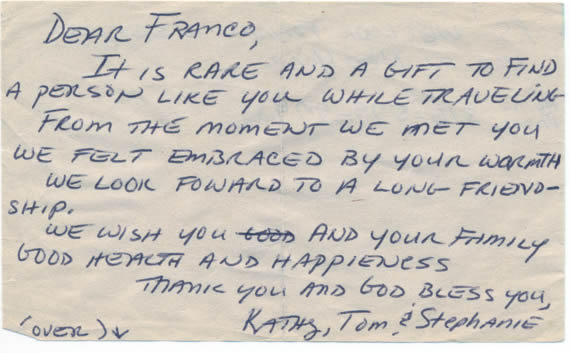 DEAR FRANCO,
It IS RARE AND A GIFT TO FIND
A PERSON LIKE YOU WHILE TRAVELING
FROM THE MOMENT WE MET YOU
WE FELT EMBRACED BY YOUR WARMTH
WE LOOK FOWARD TO A LONG FRIEND-
SHIP.
WE WISH YOU GOOD AND YOUR FAMILY
GOOD HEALTH AND HAPPIENESS
THANK YOU AND GOD BLESS YOU,
KATHY, TOM, & StEPHANIE
(OVER)↓